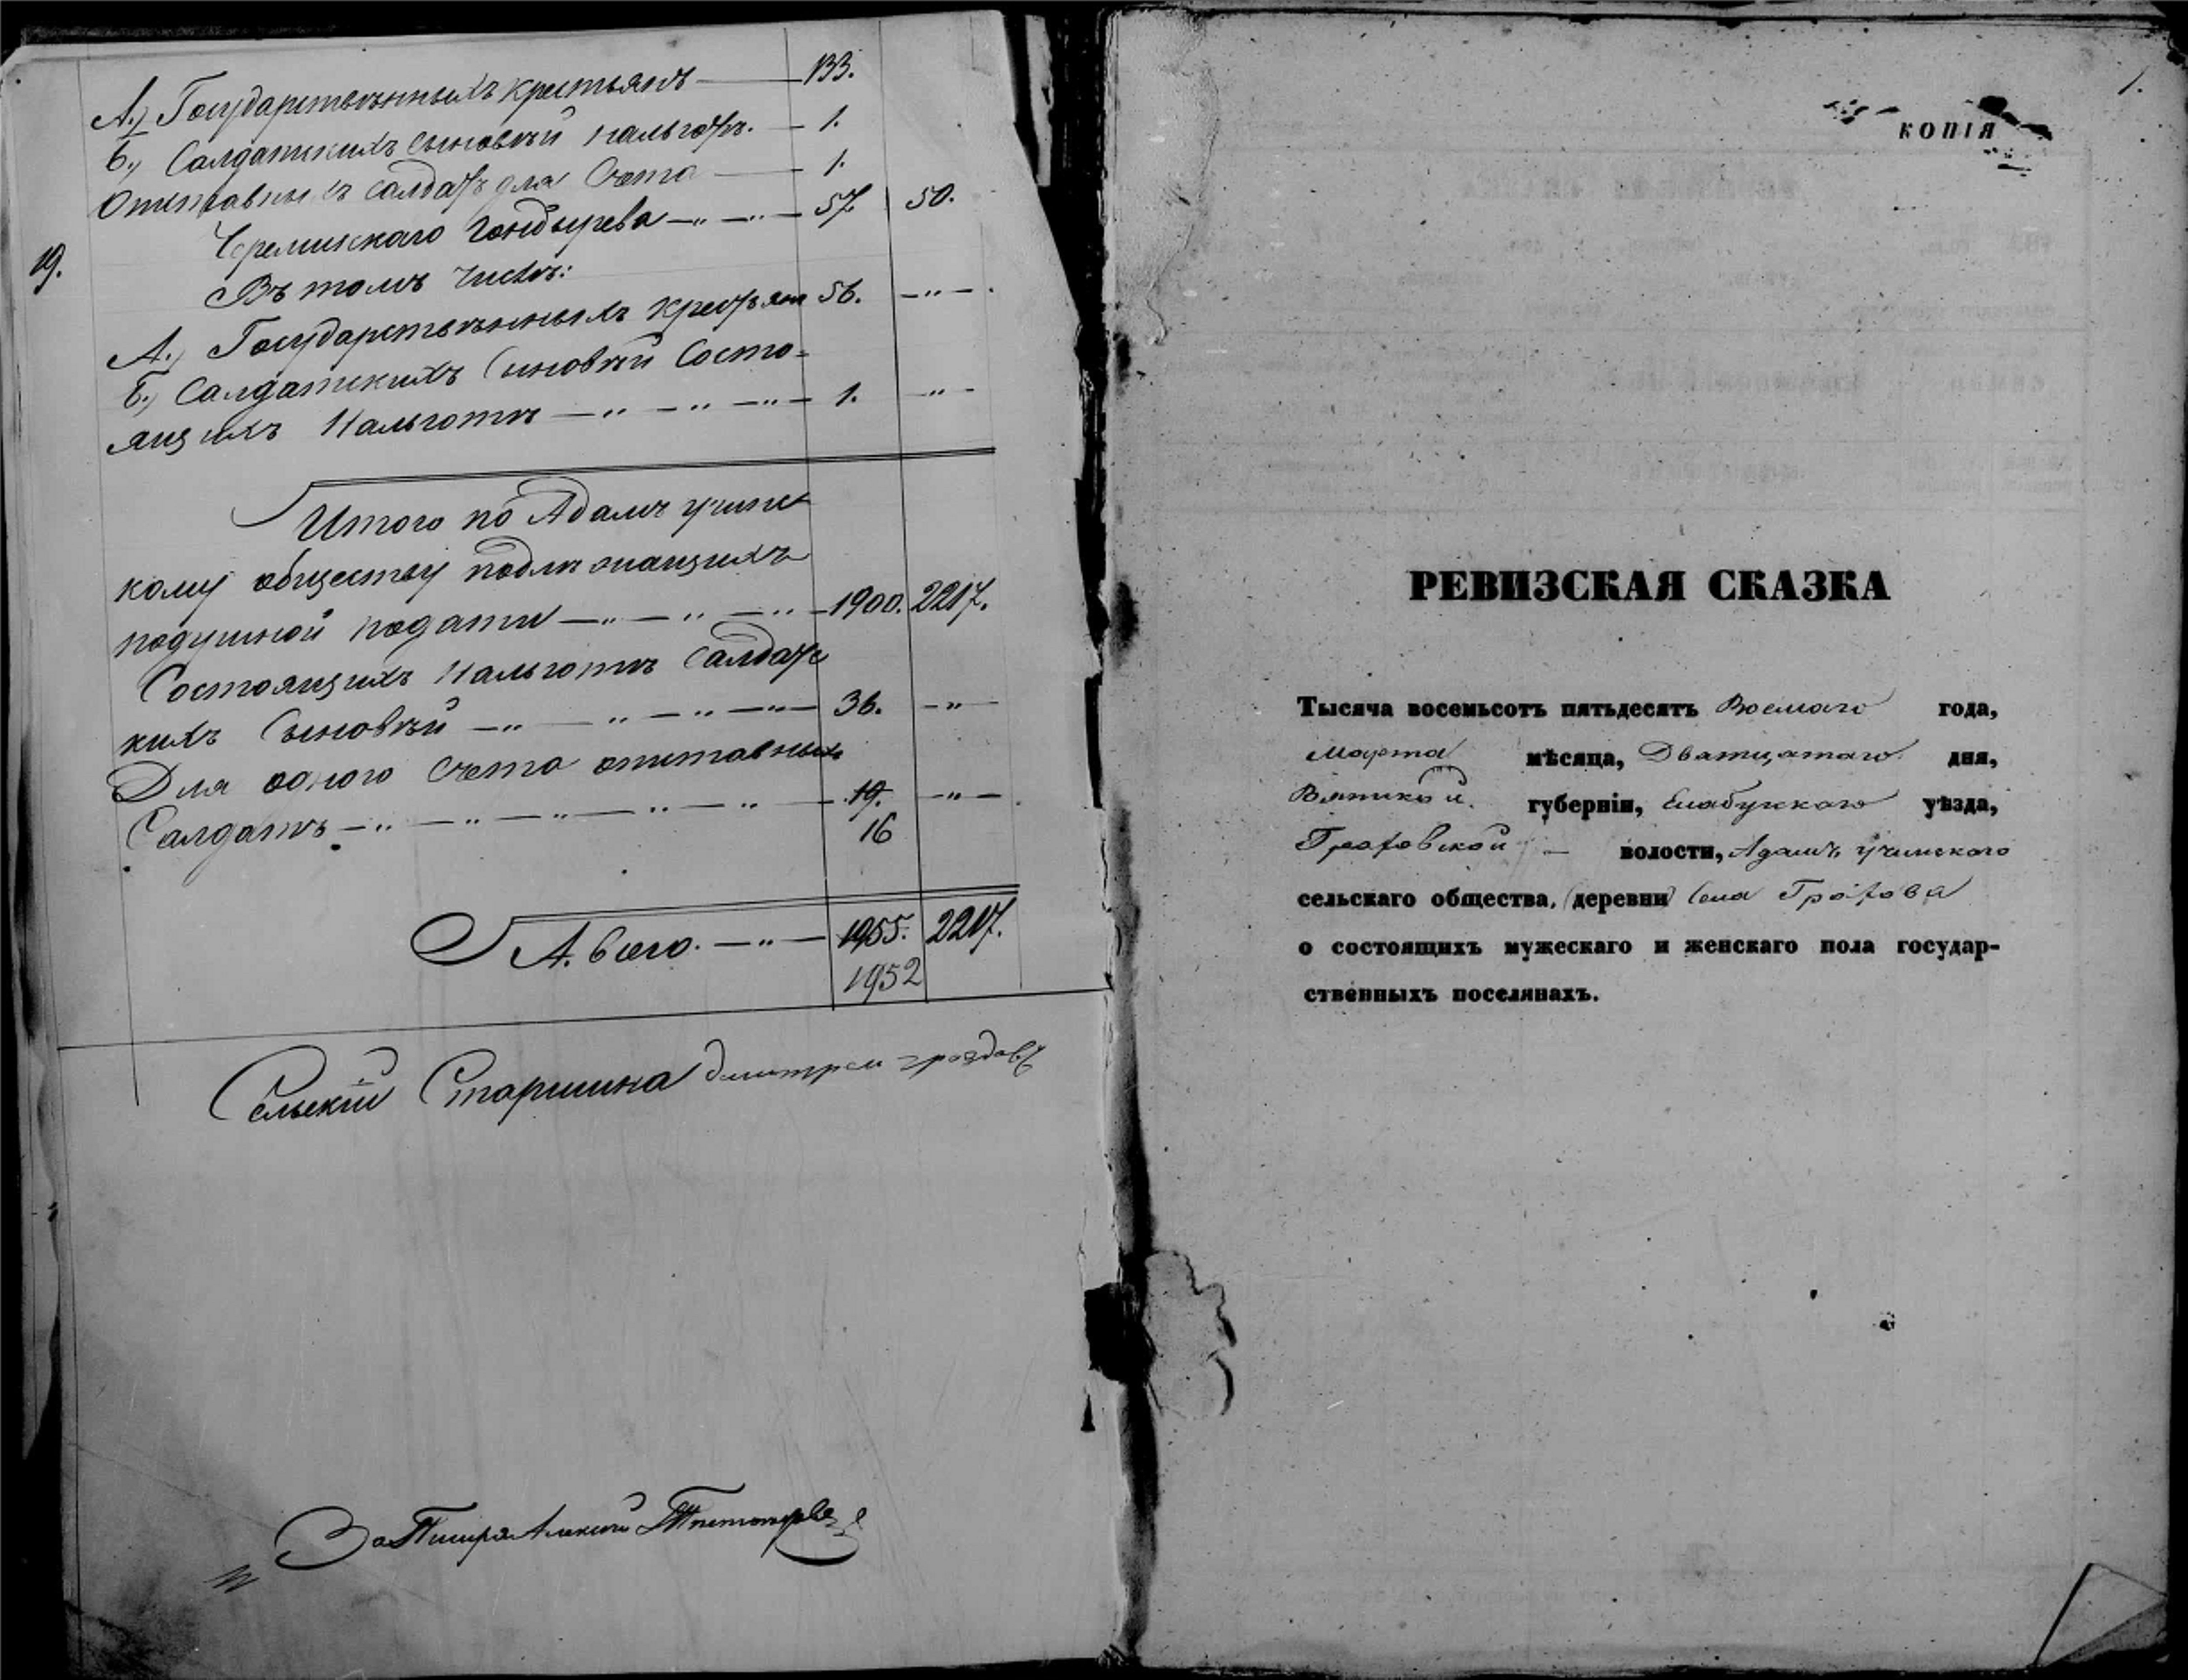 А.) Государственныхъ крестьянъ — 133.
Б.) Салдатскихъ сыновей
— 1.
салдатъ для счета — 1.
19. Гондырева — " — " — 57. 50.
Въ томъ числѣ:
А.) Государственныхъ 56. — " —
Б.) Салдатскихъ Сыновей Состо-
ящихъ нальготѣ — " — " — " — 1. — " —
Итого по Адамъ учинс
кому обществу подлежащихъ
подушной подати — " — " — " — 1900. 2217.
Состоящихъ нальготѣ Салдатс
кихъ Сыновей — " — " — " — " — 36. — " —
Для одного счета отставныхъ
Салдатъ — " — " — " — " — " — 19. — " —
16
А. всего. — " — 1955. 2217.
1952
Сельскій Старшина
1.
КОПІЯ
РЕВИЗСКАЯ СКАЗКА
Тысяча восемьсотъ пятьдесятъ Восмаго года,
Марта мѣсяца, Дватцатаго дня,
Вятской губерніи, Елабужскаго уѣзда,
Граховской — волости, Адамъ учинскаго
сельскаго общества, (деревни) Села Грахова
о состоящихъ мужескаго и женскаго пола государ-
ственныхъ поселянахъ.